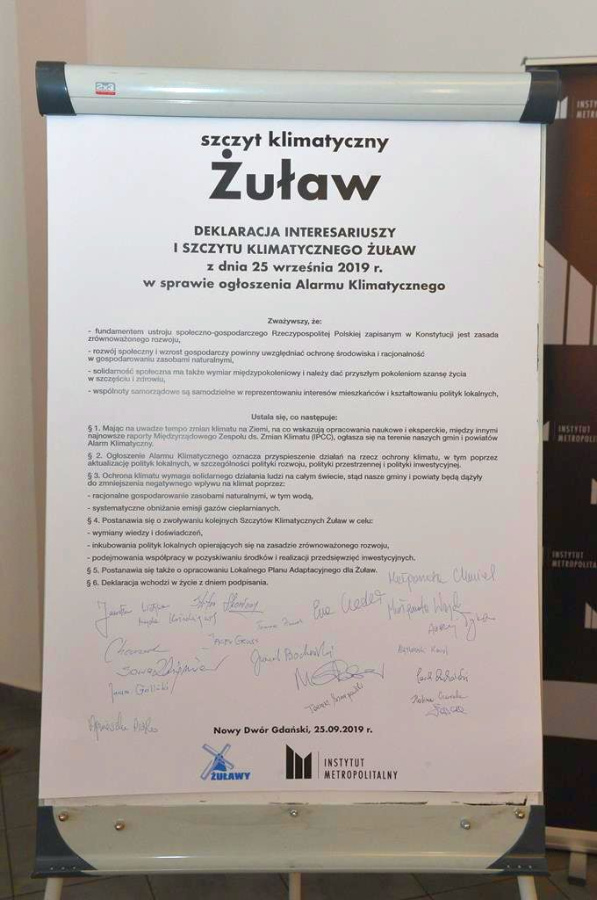 szczyt klimatyczny
Żuław
DEKLARACJA INTERESARIUSZY
I SZCZYTU KLIMATYCZNEGO ŻUŁAW
z dnia 25 września 2019 r.
w sprawie ogłoszenia Alarmu Klimatycznego
Zważywszy, że:
- fundamentem ustroju społeczno-gospodarczego Rzeczypospolitej Polskiej zapisanym w Konstytucji jest zasada
zrównoważonego rozwoju,
- rozwój społeczny i wzrost gospodarczy powinny uwzględniać ochronę środowiska i racjonalność
w gospodarowaniu zasobami naturalnymi,
- solidarność społeczna ma także wymiar międzypokoleniowy i należy dać przyszłym pokoleniom szansę życia
w szczęściu i zdrowiu,
- wspólnoty samorządowe są samodzielne w reprezentowaniu interesów mieszkańców i kształtowaniu polityk lokalnych,
Ustala się, co następuje:
§ 1. Mając na uwadze tempo zmian klimatu na Ziemi, na co wskazują opracowania naukowe i eksperckie, między innymi
najnowsze raporty Międzyrządowego Zespołu ds. Zmian Klimatu (IPCC), ogłasza się na terenie naszych gmin i powiatów
Alarm Klimatyczny.
§ 2. Ogłoszenie Alarmu Klimatycznego oznacza przyspieszenie działań na rzecz ochrony klimatu, w tym poprzez
aktualizację polityk lokalnych, w szczególności polityki rozwoju, polityki przestrzennej i polityki inwestycyjnej.
§ 3. Ochrona klimatu wymaga solidarnego działania ludzi na całym świecie, stąd nasze gminy i powiaty będą dążyły
do zmniejszenia negatywnego wpływu na klimat poprzez:
- racjonalne gospodarowanie zasobami naturalnymi, w tym wodą,
- systematyczne obniżanie emisji gazów cieplarnianych.
§ 4. Postanawia się o zwoływaniu kolejnych Szczytów Klimatycznych Żuław w celu:
- wymiany wiedzy i doświadczeń,
- inkubowania polityk lokalnych opierających się na zasadzie zrównoważonego rozwoju,
- podejmowania współpracy w pozyskiwaniu środków i realizacji przedsięwzięć inwestycyjnych.
§ 5. Postanawia się także o opracowaniu Lokalnego Planu Adaptacyjnego dla Żuław.
§ 6. Deklaracja wchodzi w życie z dniem podpisania.
Nowy Dwór Gdański, 25.09.2019 r.
ŻUŁAWY
INSTYTUT
METROPOLITALNY
INSTYTUT
METROPOLITALNY